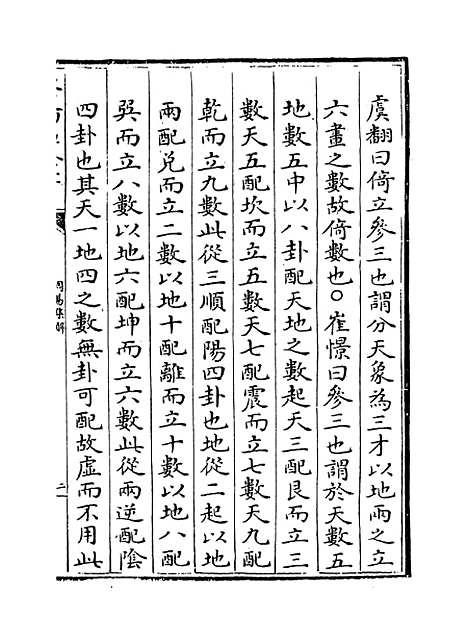 虞翻曰倚立參三也謂分天象為三才以地兩之立
六畫之數故倚數也○崔憬曰參三也謂於天數五
地數五中以八卦配天地之數起天三配艮而立三
數天五配坎而立五數天七配震而立七數天九配
乾而立九數此從三順配陽四卦也地從二起以地
兩配兌而立二數以地十配離而立十數以地八配
巽而立八數以地六配坤而立六數此從兩逆配陰
四卦也其天一地四之數無卦可配故虛而不用此
周易集解
二